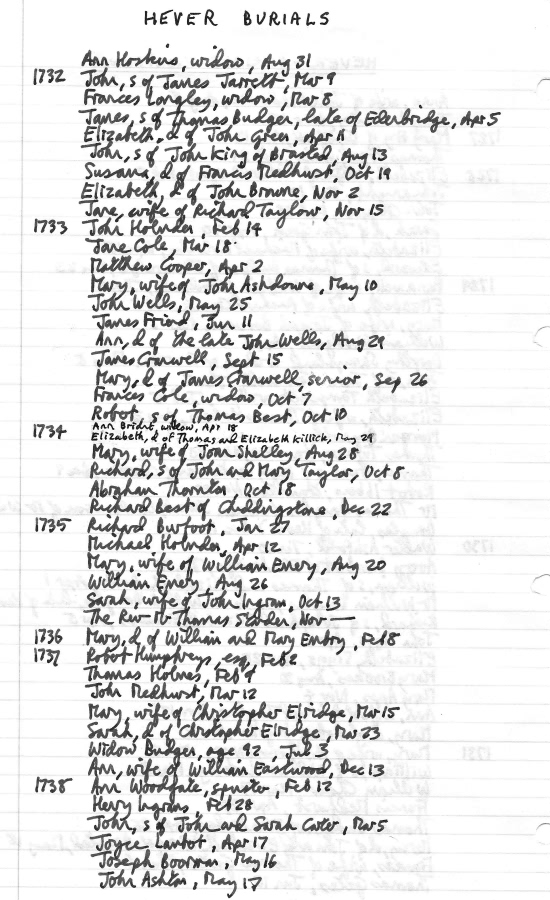 HEVER BURIALS
Ann Hoskins, widow, Aug 31
1732 John, s of James Jarrett, Mar 9
Frances Longley, widow, Mar 8
James, s of Thomas Budger, late of Edenbridge, Apr 5
Elizabeth, d of John Green, Apr 11
John, s of John King of Brasted, Aug 13
Susana, d of Francis Medhurst, Oct 19
Elizabeth, d of John Browne, Nov 2
Jane, wife of Richard Taylour, Nov 15
1733 John Holmden, Feb 14
Jane Cole, Mar 18
Matthew Cooper, Apr 2
Mary, wife of John Ashdowne, May 10
John Wells, May 25
James Friend, Jun 11
Ann, d of the late John Wells, Aug 29
James Cranwell, Sept 15
Mary, d of James Cranwell, senior, Sep 26
Frances Cole, widow, Oct 7
Robert, s of Thomas Best, Oct 10
1734 Ann Bridge, widow, Apr 18
Elizabeth, d of Thomas and Elizabeth Killick, May 29
Mary, wife of John Shelley, Aug 28
Richard, s of John and Mary Taylor, Oct 8
Abraham Thornton, Oct 18
Richard Best of Chiddingstone, Dec 22
1735 Richard Burfoot, Jan 27
Michael Holmden, Apr 12
Mary, wife of William Emery, Aug 20
William Emery, Aug 26
Sarah, wife of John Ingram, Oct 13
The Rev Mr Thomas, Nov —
1736 Mary, d of William and Mary Embry, Feb 8
1737 Robert Humphreys, esq, Feb 2
Thomas Holmes, Feb 9
John Medhurst, Mar 12
Mary, wife of Christopher Elridge, Mar 15
Sarah, d of Christopher Elridge, Mar 23
Widow Budger, age 92, Jul 3
Ann, wife of William Eastwood, Dec 13
1738 Ann Woodgate, spinster, Feb 12
Henry Ingrams, Feb 28
John, s of John and Sarah Carter, Mar 5
Joyce, Apr 17
Joseph Boorman, May 16
John Ashton, May 17